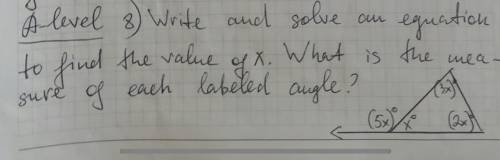 A-level 8) Write and solve an equation
to find the value of x. What is the mea-
sure of each labeled angle?
(3x)°
(5x)° x° (2x)°